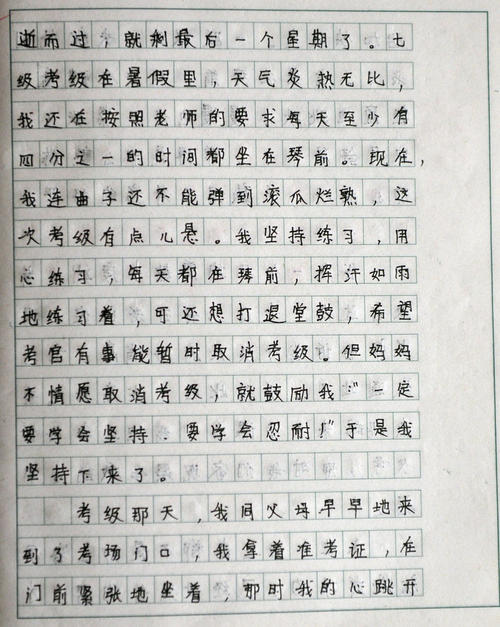 逝而过，就剩最后一个星期了。七
级考级在暑假里，天气炎热无比，
我还在按照老师的要求每天至少有
四分之一的时间都坐在琴前。现在，
我连曲子还不能弹到滚瓜烂熟，这
次考级有点儿悬。我坚持练习，用
心练习，每天都在琴前，挥汗如雨
地练习着，可还想打退堂鼓，希望
考官有事能暂时取消考级。但妈妈
不情愿取消考级，就鼓励我:“一定
要学会坚持，要学会忍耐!”于是我
坚持下来了。
考级那天，我同父母早早地来
到了考场门口，我拿着准考证，在
门前紧张地坐着，那时我的心跳开